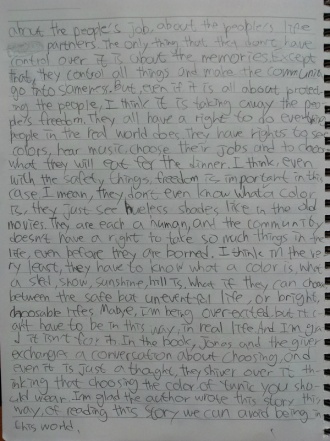 about the people's job, about the people's life
partners. The only thing that, they don't have
control over it is about the memories. Except
that, they control all things and make the communit
go into sameness. But, even if it is all about protec
ing the people, I think it is taking away the peo
ple's freedom. They all have a right to do everythin
people in the real world does. They have rights to see
colors, hear music, choose their jobs and to choose
what they will eat for the dinner. I think, even
with the safety things, freedom is important in this
case. I mean, they don't even know what a color
is, they just see hueless shades like in the old
movies. They are each a human, and the community
doesn't have a right to take so much things in the
life, even before they are borned. I think in the ve
ry least, they have to know what a color is, what
a sled, snow, sunshine, hill is, what if they can choose
between the safe but uneventful life, or bright,
choosable lifes. Mabye, I'm being overexcited, but it
ght have to be in this way, in real life. And I'm glad
it isn't for it. In the book, Jonas and the giver
exchanges a conversation about choosing, and
even it is just a thought, they shiver over it thi
nking that choosing the color of tunic you sho
uld wear. I'm glad the author wrote this story this
way. Of reading this story we can avoid being in
this world.